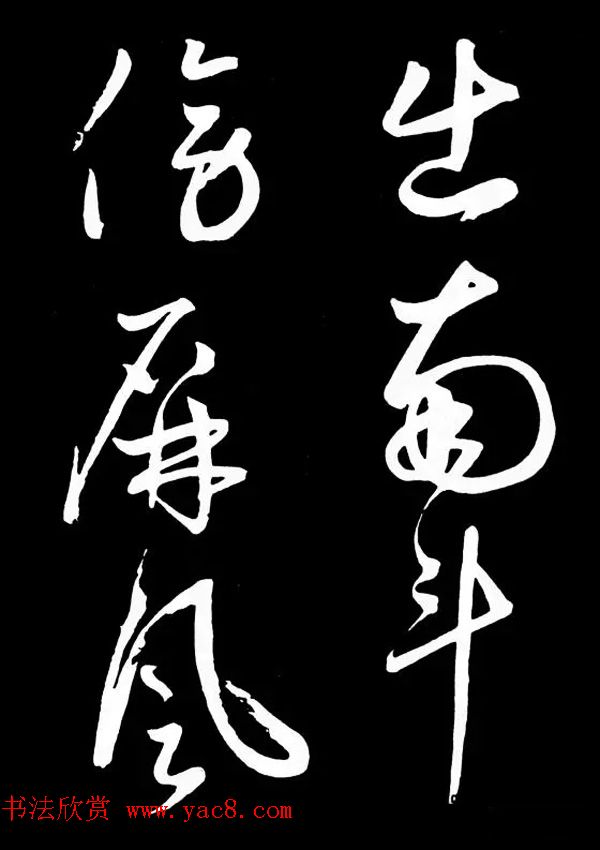 出南斗
傍屏风
书法欣赏 www.yac8.com